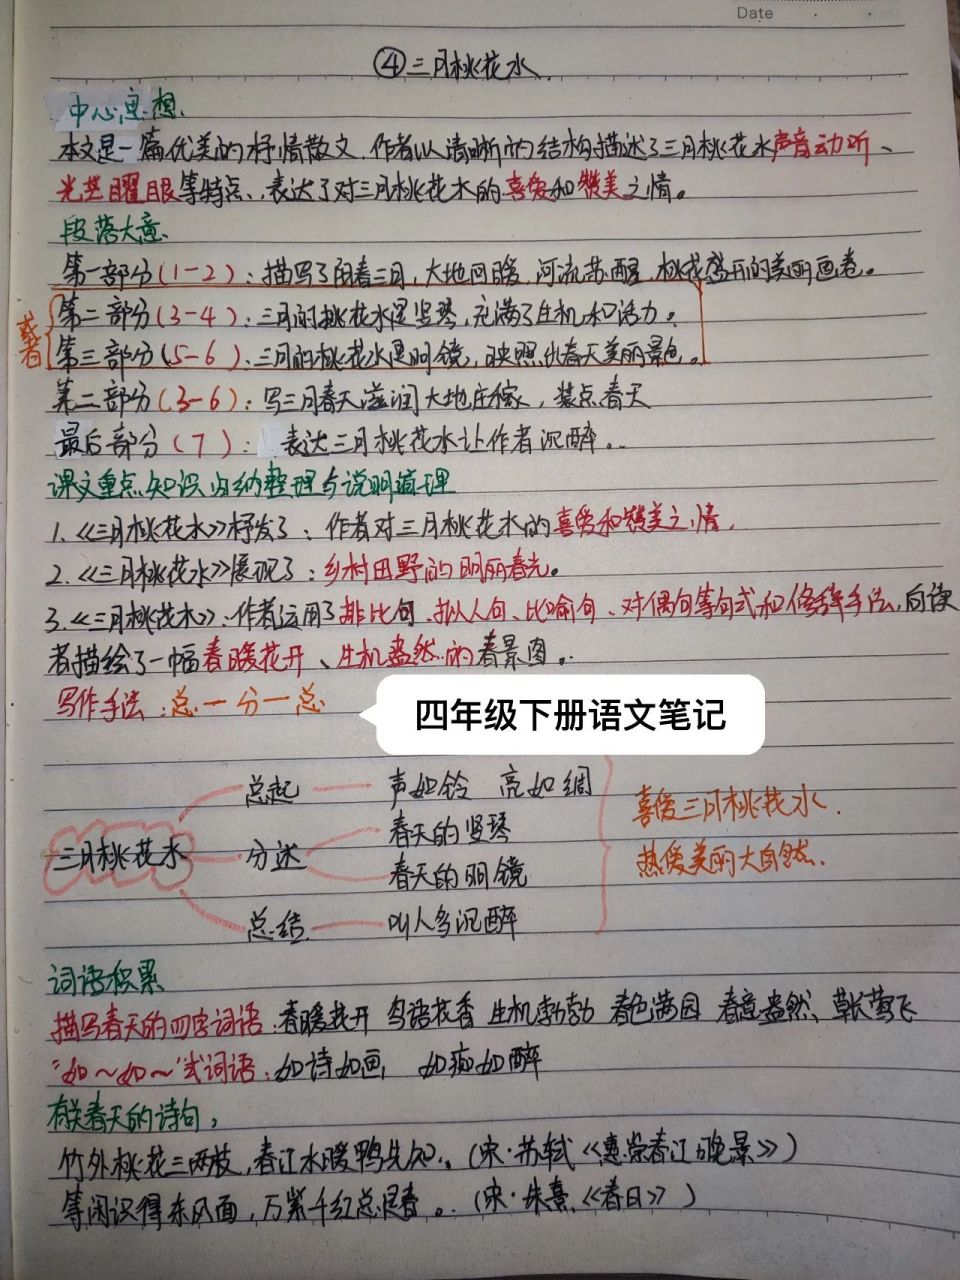 Date
④三月桃花水
中心思想
本文是一篇优美的抒情散文,作者以清晰的结构描述了三月桃花水声音动听、
光芒耀眼等特点、表达了对三月桃花水的喜爱和赞美之情。
段落大意
第一部分(1-2):描写了阳春三月,大地回暖,河流苏醒,桃花盛开的美丽画卷。
或者
第二部分(3-4):三月的桃花水是竖琴,充满了生机和活力。
第三部分(5-6):三月的桃花水是明镜,映照出春天美丽景色。
第二部分(3-6):写三月春天滋润大地庄稼,装点春天
最后部分(7):表达三月桃花水让作者沉醉。
课文重点知识归纳整理与说明梳理
1.《三月桃花水》抒发了:作者对三月桃花水的喜爱和赞美之情.
2.《三月桃花水》展现了:乡村田野的明丽春光。
3.《三月桃花水》、作者运用了排比句、拟人句、比喻句、对偶句等句式和修辞手法,向读
者描绘了一幅春暖花开、生机盎然的春景图。
写作手法:总一分一总
四年级下册语文笔记
总起 声如铃 亮如绸
春天的竖琴
喜爱三月桃花水.
三月桃花水 分述
春天的明镜
热爱美丽大自然.
总结 叫人多沉醉
词语积累
描写春天的四字词语:春暖花开 鸟语花香 生机勃勃 春色满园 春意盎然、草长莺飞
"如~如~"式词语:如诗如画 如痴如醉
有关春天的诗句:
竹外桃花三两枝,春江水暖鸭先知。(宋·苏轼《惠崇春江晚景》)
等闲识得东风面,万紫千红总是春。(宋·朱熹《春日》)